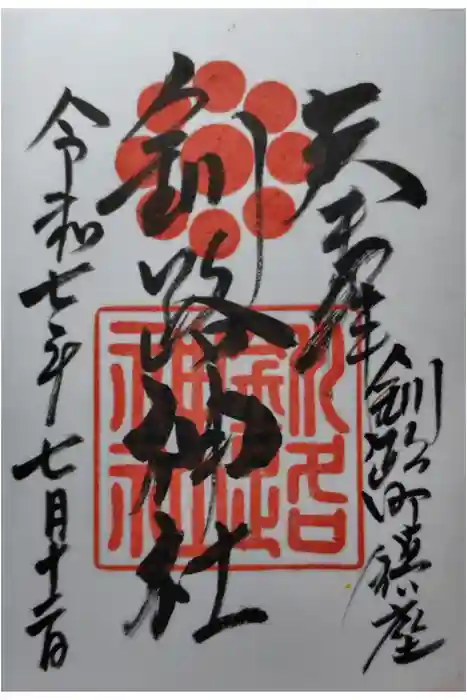 釧路町鎮座
釧路神社
令和七年七月十二日
釧路神社